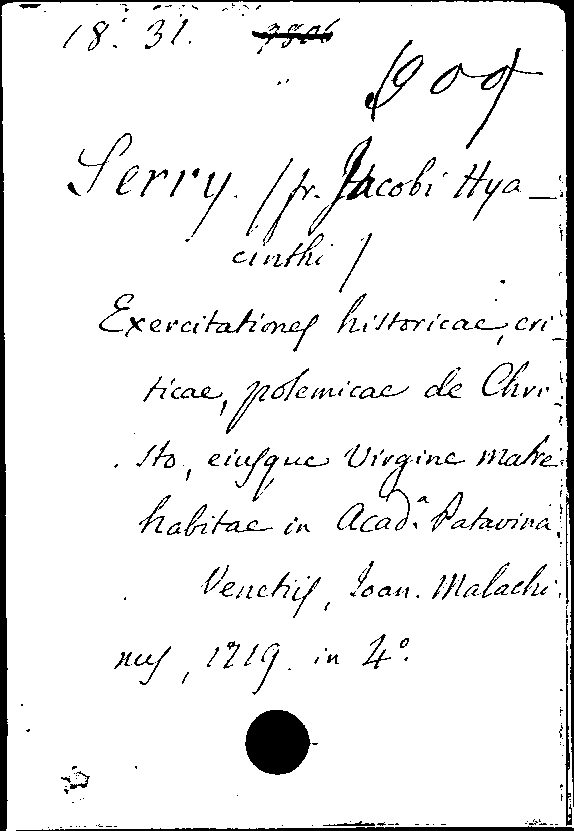 18. 31.
909
Serry. / fr. Jacobi Hya-
cinthi /
Exercitationes historicae, cri-
ticae, polemicae de Chri-
sto, eiusque Virgine matre
habitae in Acad.a Patavina.
Venetiis, Ioan. Malachi-
nus, 1719. in 4°.